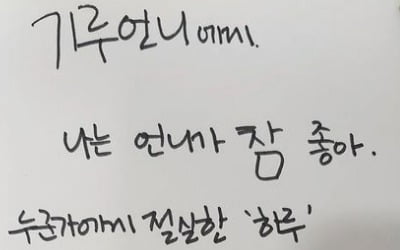 기루언니에게.
나는 언니가 참 좋아.
누군가에게 절실한 '하루'